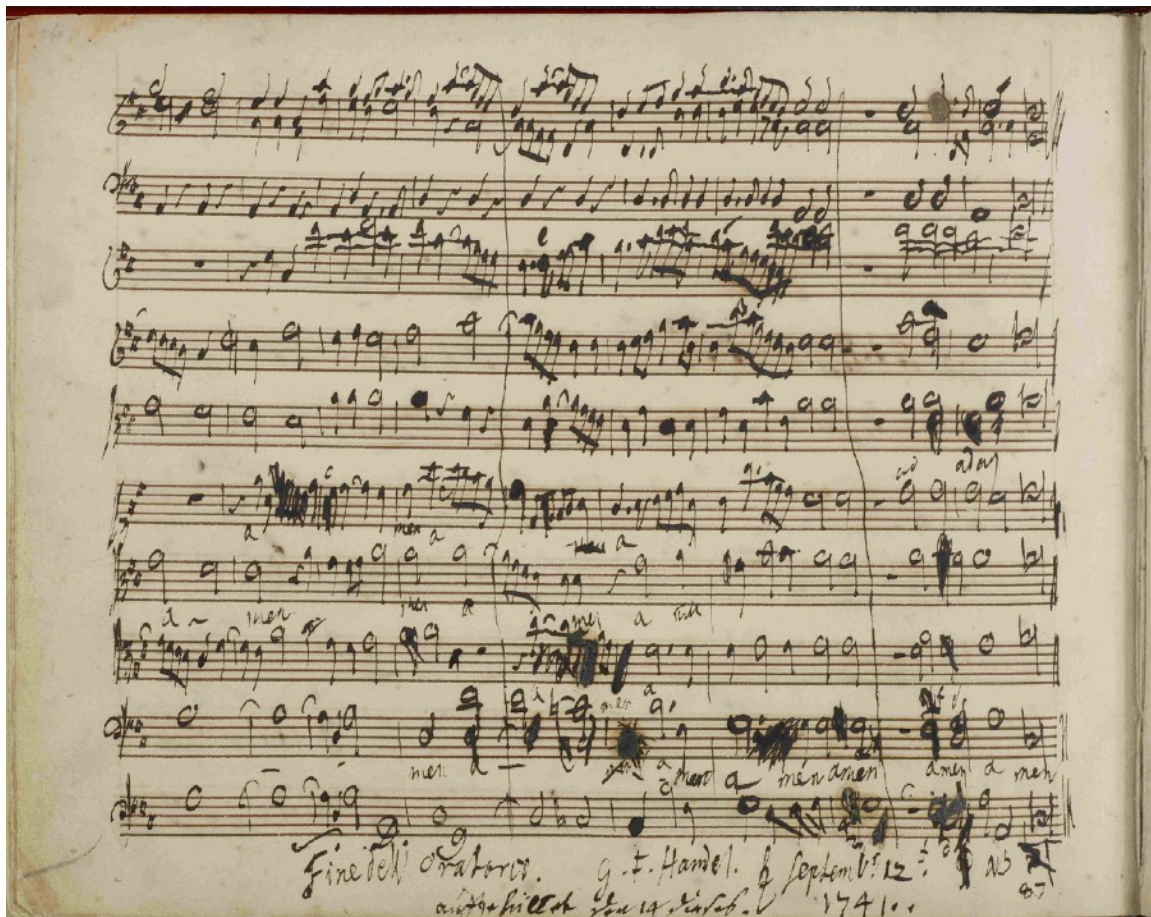 ad adag
a men a men a
a men men a a men a men
a men a
men a men a men amen amen a men
Fine dell' Oratorio. G. F. Handel. ♄ Septembr 12. 1741.
ausgefüllet den 14 dieses.
87